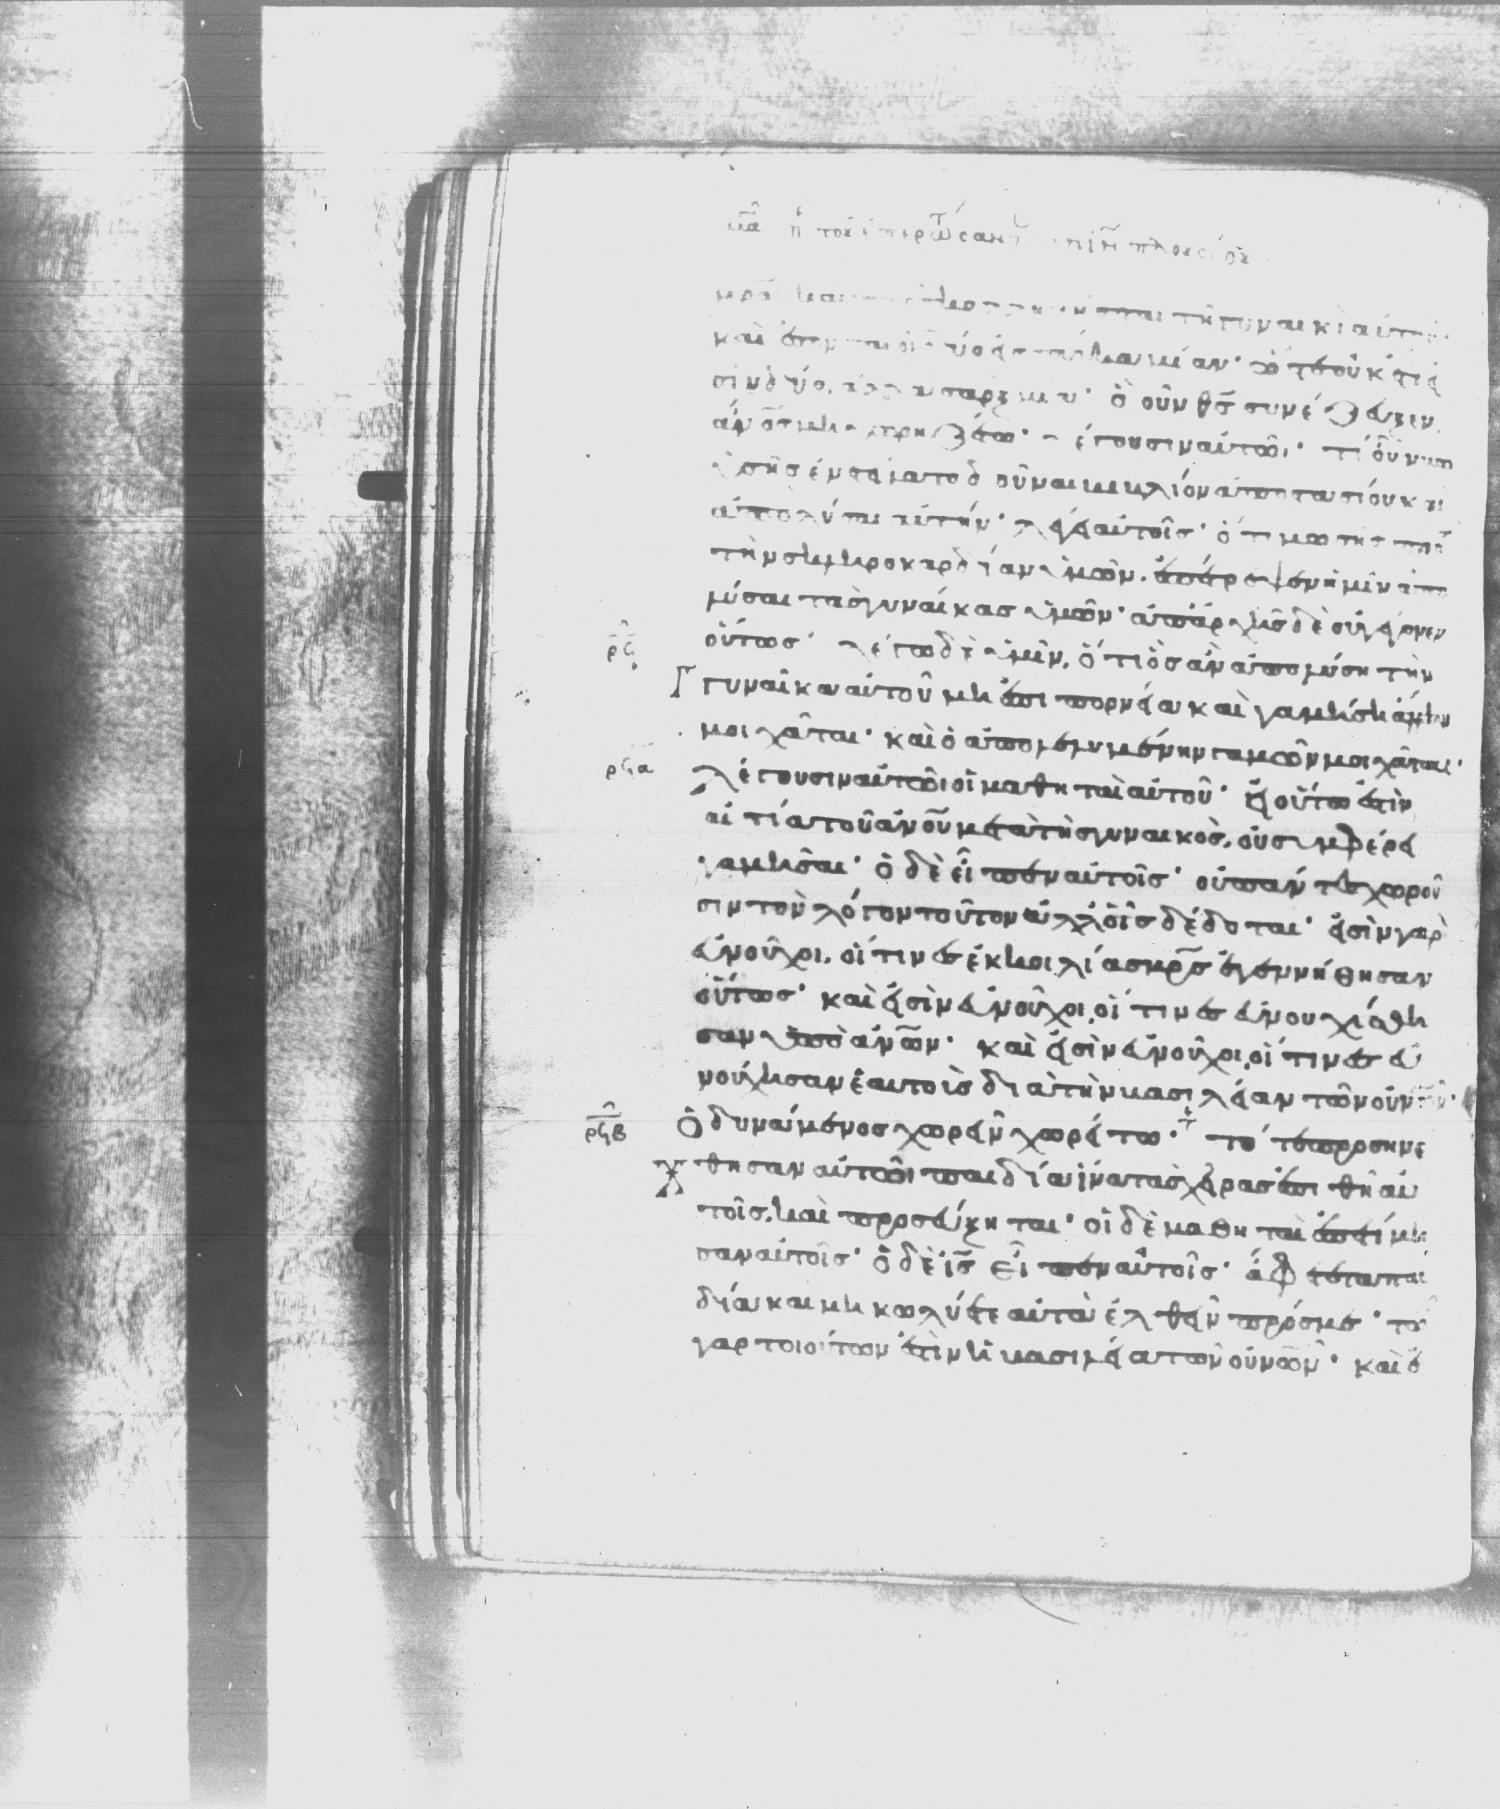 μα π τοῦ ἐπερωτήσαντ πλουσίου
μρα καὶ τῆ γυναικὶ αὐτοῦ
καὶ ἔσονται οἱ δύο εἰς σάρκα μίαν· ὥστε οὐκέτι εἰ
σὶν δύο, ἀλλὰ σὰρξ μία· ὃ οὖν θς συνέζευξεν
ἄνος μὴ χωριζέτω· λέγουσιν αὐτῶ· τί οὖν μω
ϋσῆς ἐνετείλατο δοῦναι βιβλίον ἀποστασίου καὶ
ἀπολύσαι αὐτήν· λέγει αὐτοῖς· ὅτι μωσῆς πρὸς
τὴν σκληροκαρδίαν ὑμῶν. ἐπέτρεψεν ὑμῖν ἀπο
λύσαι τὰς γυναίκας ὑμῶν· ἀπ' ἀρχῆς δὲ οὐ γέγονεν
ρϟ οὕτως· λέγω δὲ ὑμῖν, ὅτι ὃς ἂν ἀπολύση τὴν
γυναῖκα αὐτοῦ μὴ ἐπὶ πορνεία καὶ γαμήση ἄλλην
μοιχᾶται· καὶ ὁ ἀπολελυμένην γαμῶν μοιχᾶται·
ρϟα λέγουσιν αὐτῶ οἱ μαθηταὶ αὐτοῦ· εἰ οὕτω ἐστὶν
αἰτία τοῦ ἀνου μετὰ τῆς γυναικός, οὐ συμφέρει
γαμῆσαι· ὁ δὲ εἶπεν αὐτοῖς· οὐ πάντες χωροῦ
σιν τὸν λόγον τοῦτον ἀλλ' οἷς δέδοται· εἰσὶν γὰρ
εὐνοῦχοι, οἵτινες ἐκ κοιλίας μρς ἐγεννήθησαν
οὕτως· καὶ εἰσὶν εὐνοῦχοι, οἵτινες εὐνουχίσθη
σαν ὑπὸ ἀνων· καὶ εἰσὶν εὐνοῦχοι, οἵτινες εὐ
νούχισαν ἑαυτοὺς διὰ τὴν βασιλείαν τῶν οὐνῶν·
ρϟβ Ὁ δυνάμενος χωρεῖν χωρείτω· τότε προσηνέ
χθησαν αὐτῶ παιδία ἵνα τὰς χεῖρας ἐπιθῆ αὐ
τοῖς, καὶ προσεύξηται· οἱ δὲ μαθηταὶ ἐπετίμη
σαν αὐτοῖς· ὁ δὲ ις εἶπεν αὐτοῖς· ἄφετε τὰ παι
δία καὶ μὴ κωλύετε αὐτὰ ἐλθεῖν πρός με· τῶν
γὰρ τοιούτων ἐστὶν ἡ βασιλεία τῶν οὐνῶν· καὶ ἐ